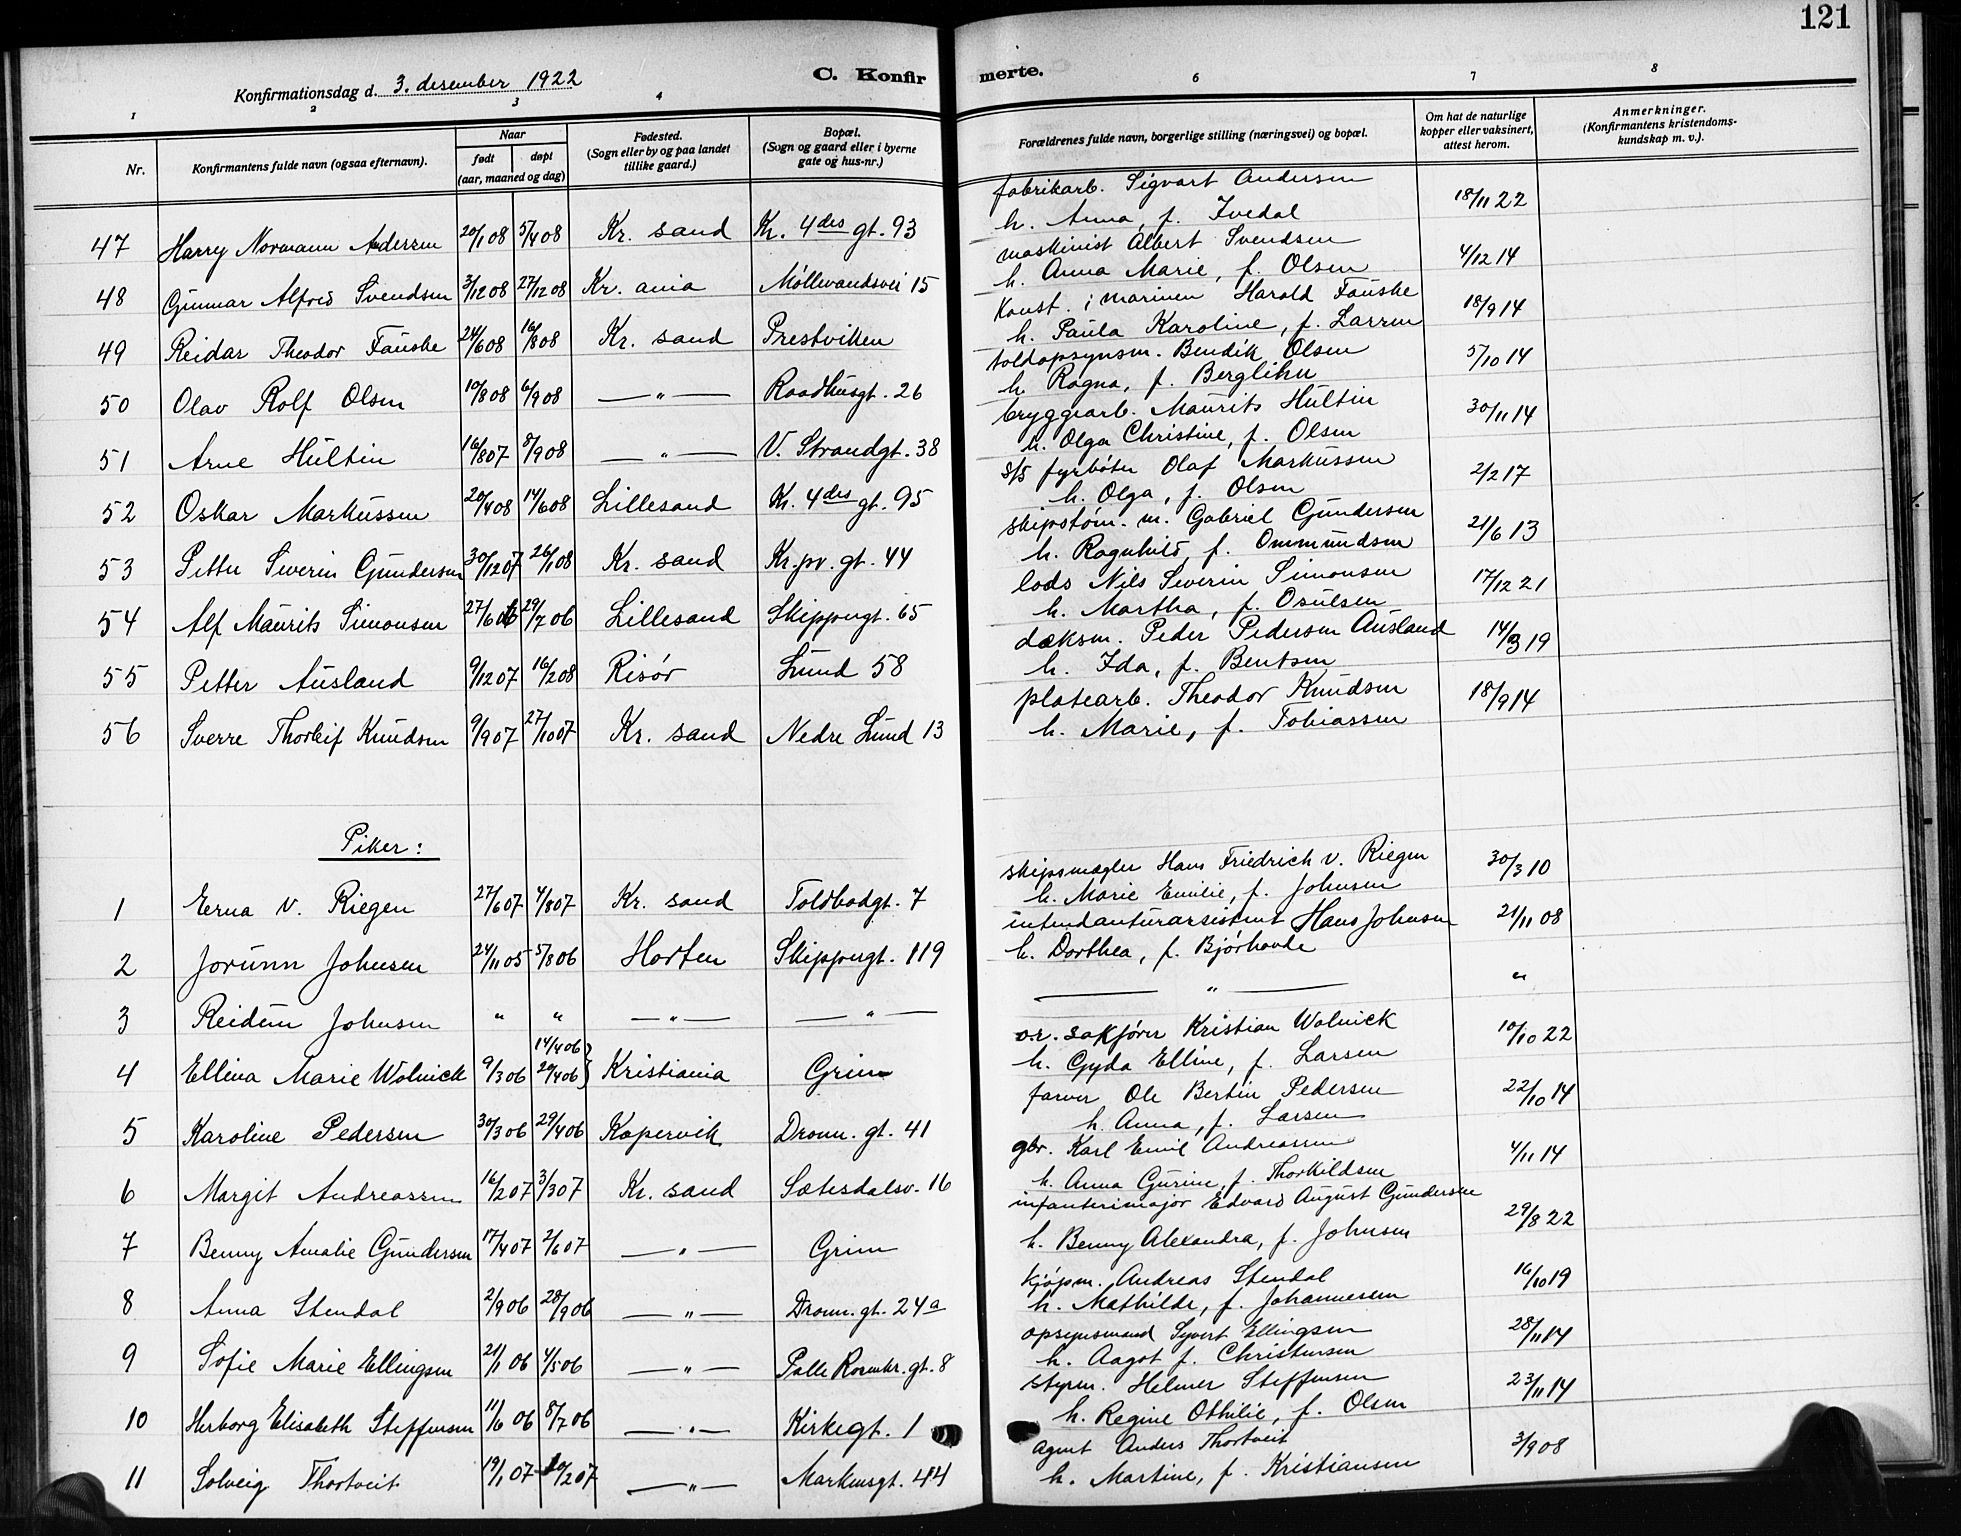 121
C. Konfirmerte.
Konfirmationsdag d. 3. desember 1922
1 2 3 4 6 7 8
Nr. Konfirmantens fulde navn (ogsaa efternavn). Naar født døpt (aar, maaned og dag) Fødested. (Sogn eller by og paa landet tillike gaard.) Bopæl. (Sogn og gaard eller i byerne gate og hus-nr.) Forældrenes fulde navn, borgerlige stilling (næringsvei) og bopæl. Om hat de naturlige kopper eller vaksinert, attest herom. Anmerkninger. (Konfirmantens kristendomskundskap m. v.).
fabrikarb. Sigvart Andersen 18/11 22
47 Harry Normann Andersen 20/1 08 5/4 08 Kr. sand Kr. 4des gt. 93 h. Anna, f. Ivedal
maskinist Albert Svendsen 4/12 14
48 Gunnar Alfred Svendsen 3/12 08 27/12 08 Kr. ania Møllevandsvei 15 h. Anna Marie, f. Olsen
Konst. i marinen Harald Fauske 18/9 14
49 Reidar Theodor Fauske 24/6 08 16/8 08 Kr. sand Prestviken h. Paula Karoline, f. Larsen
toldopsynsm. Bendik Olsen 5/10 14
50 Olav Rolf Olsen 10/8 08 6/9 08 — " — Raadhusgt. 26 h. Ragna, f. Berglihn
bryggearb. Maurits Hultin 30/11 14
51 Arne Hultin 16/8 07 8/9 08 — " — V. Strandgt. 38 h. Olga Christine, f. Olsen
s/s fyrbøter Olaf Markussen 2/2 17
52 Oskar Markussen 20/4 08 14/6 08 Lillesand Kr. 4des gt. 95 h. Olga, f. Olsen
skipstøm. m. Gabriel Gundersen 21/6 13
53 Petter Severin Gundersen 30/12 07 26/1 08 Kr. sand Kr. pr. gt. 44 h. Ragnhild, f. Ommundsen
lods Nils Severin Simonsen 17/12 21
54 Alf Maurits Simonsen 27/6 06 29/7 06 Lillesand Skippergt. 65 h. Martha, f. Osulsen
dæksm. Peder Pedersen Ausland 14/3 19
55 Petter Ausland 9/12 07 16/2 08 Risør Lund 58 h. Ida, f. Bentsen
platearb. Theodor Knudsen 18/9 14
56 Sverre Thorleif Knudsen 9/9 07 27/10 07 Kr. sand Nedre Lund 13 h. Marie, f. Tobiassen
Piker:
skipsmægler Hans Friedrich v. Riegen 30/3 10
1 Erna v. Riegen 27/6 07 4/8 07 Kr. sand Toldbodgt. 7 h. Marie Emilie, f. Johnsen
intendanturassistent Hans Johnsen 21/11 08
2 Jorunn Johnsen 24/11 05 5/8 06 Horten Skippergt. 119 h. Dorthea, f. Bjørhovde
3 Reidun Johnsen " " — " — — " — — " — "
o.r. sakfører Kristian Wolnick 10/10 22
4 Ellina Marie Wolnick 9/3 06 14/4 06 29/4 06 } Kristiania Grim h. Gyda Elline, f. Larsen
farver Ole Bertin Pedersen 22/10 14
5 Karoline Pedersen 30/3 06 29/4 06 Kopervik Dronn. gt. 41 h. Anna, f. Larsen
gbr. Karl Emil Andreassen 4/11 14
6 Margit Andreassen 16/2 07 3/3 07 Kr. sand Sætesdalsv. 16 h. Anna Gurine, f. Thorkildsen
infanterimajor Edvard August Gundersen 29/8 22
7 Benny Amalie Gundersen 17/4 07 2/6 07 — " — Grim h. Benny Alexandra, f. Johnsen
kjøpm. Andreas Stendal 16/10 19
8 Anna Stendal 2/9 06 28/9 06 — " — Dronn. gt. 24a h. Mathilde, f. Johannesen
opsynsmand Syvert Ellingsen 28/11 14
9 Sofie Marie Ellingsen 21/1 06 4/5 06 — " — Palle Rosenkr. gt. 8 h. Aagot f. Christensen
styrm. Helmer Steffensen 23/11 14
10 Herborg Elisabeth Steffensen 11/6 06 8/7 06 — " — Kirkegt. 1 h. Regine Othilie, f. Olsen
agent Anders Thortveit 3/9 08
11 Solveig Thortveit 19/1 07 20/2 07 — " — Markensgt. 44 h. Martine, f. Kristiansen